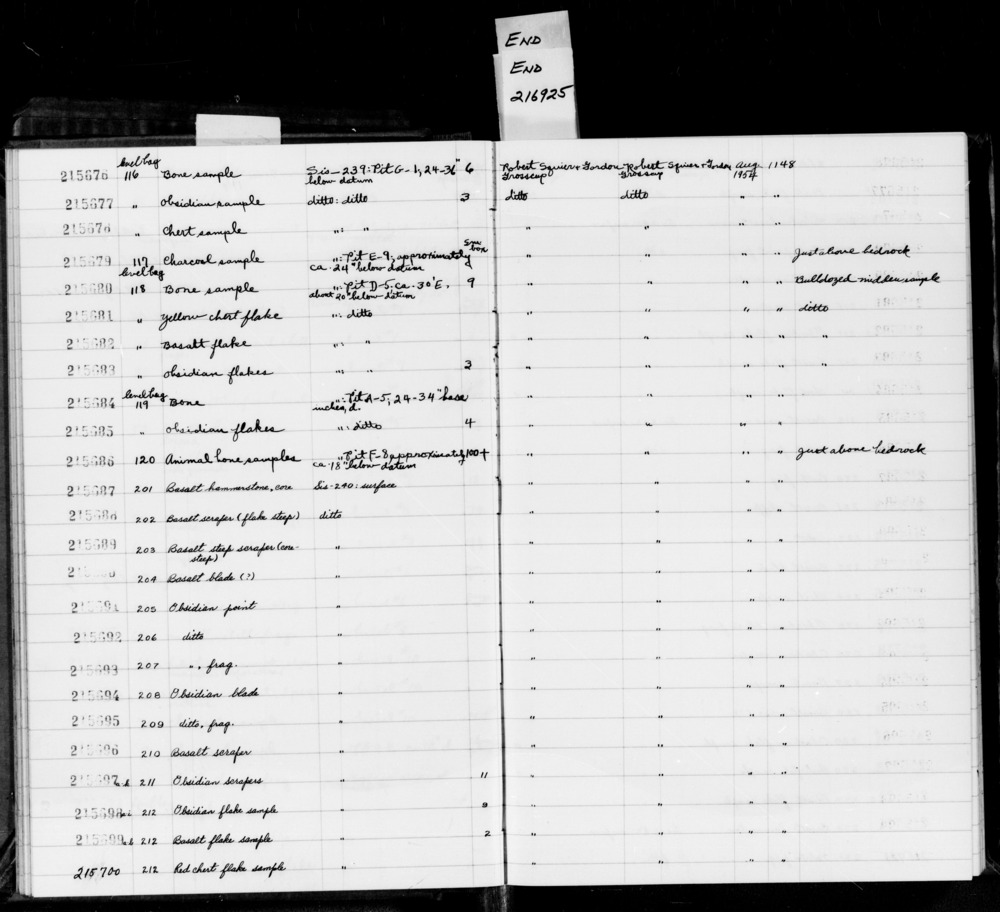 END
END
216925
level bag
215676 116 Bone sample Sis-239: Pit G-1, 24-36" 6 Robert Squier + Gordon Robert Squier + Gordon Aug. 1148
below datum Grosscup Grosscup 1954
215677 " Obsidian sample ditto: ditto 3 ditto ditto " "
215678 " Chert sample ": " " " " "
Sm
box
215679 117 Charcoal sample ": Pit E-9, approximately " " " " Just above bedrock
ca. 24" below datum
level bag
215680 118 Bone sample ": Pit D-5, ca. 30' E, 9 " " " " Bulldozed midden sample
about 20" below datum
215681 " Yellow chert flake ": ditto " " " " ditto
215682 " Basalt flake ": " " " " " "
215683 " Obsidian flakes " " 3 " " " " "
level bag
215684 119 Bone ": Pit A-5, 24-34" " " " "
215685 " Obsidian flakes ": ditto 4 " " " "
215686 120 Animal bone samples ": Pit F-8 approximately 100+ " " " " Just above bedrock
ca. 18" below datum
215687 201 Basalt hammerstone, core Sis-240: surface " " " "
215688 202 Basalt scraper (flake steep) ditto " " " "
215689 203 Basalt steep scraper (core- " " " " "
steep)
204 Basalt blade (?) " " " " "
215691 205 Obsidian point " " " " "
215692 206 ditto " " " " "
215693 207 ", frag. " " " " "
215694 208 Obsidian blade " " " " "
215695 209 ditto, frag. " " " " "
215696 210 Basalt scraper " " " " "
215697 211 Obsidian scrapers " 11 " " " "
215698 212 Obsidian flake sample " 9 " " " "
215699 212 Basalt flake sample " 2 " " " "
215700 212 Red chert flake sample " " " " "